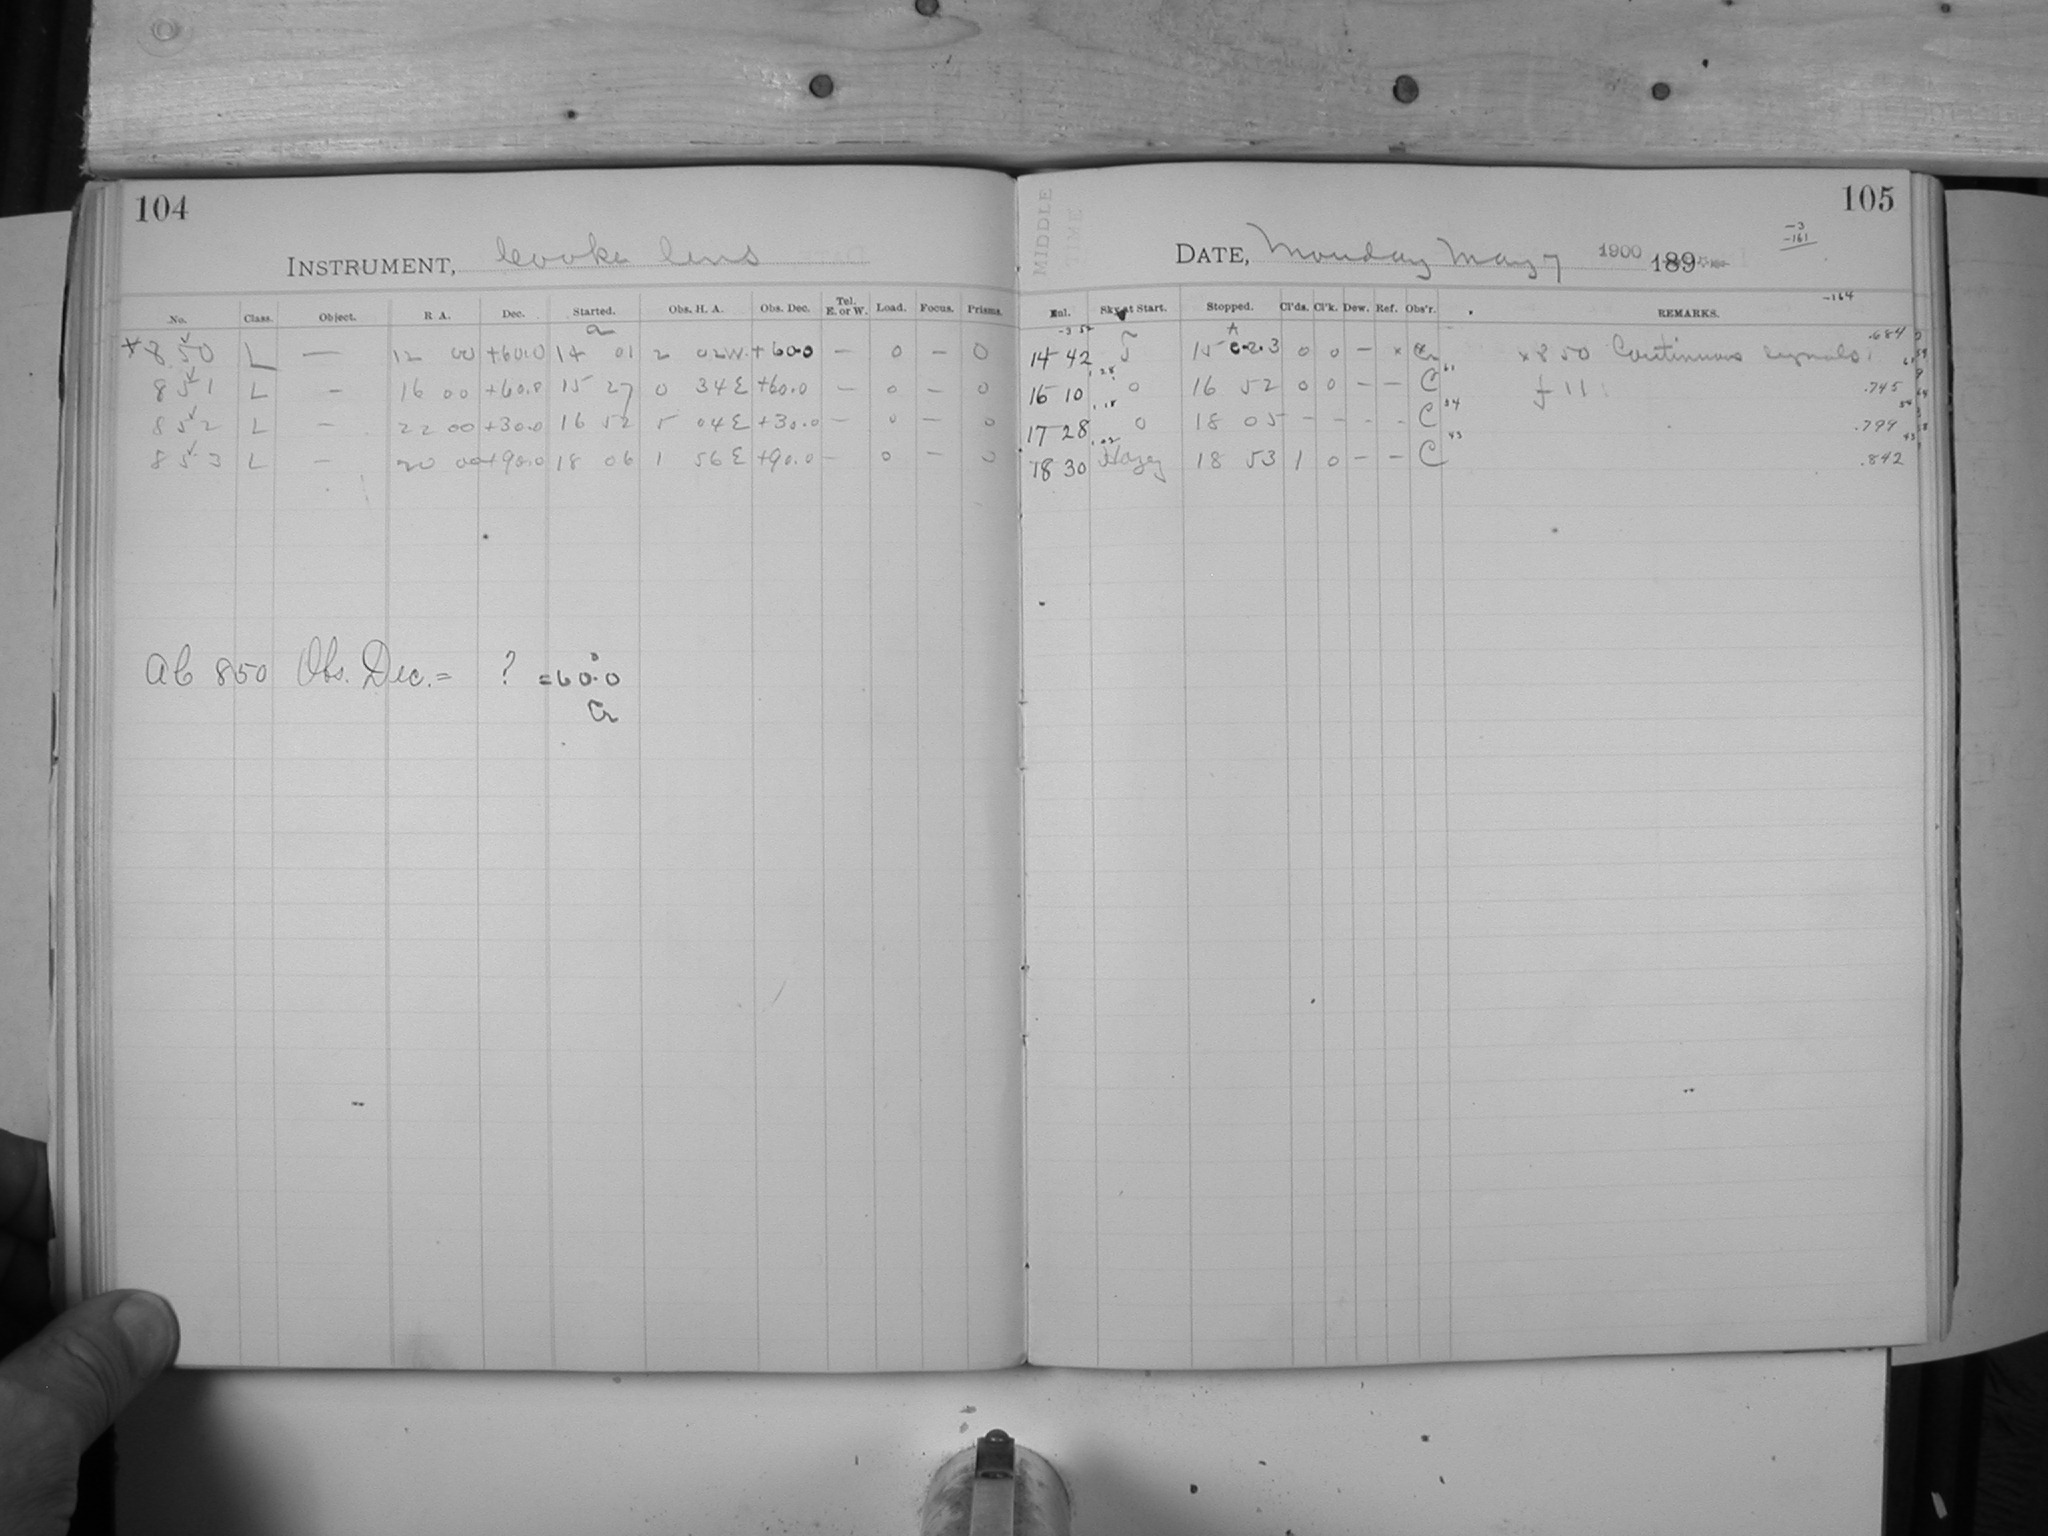 104
INSTRUMENT, Cooke lens
No. Class. Object. R A. Dec. Started. Obs. H. A. Obs. Dec. Tel. E. or W. Load. Focus. Prisms.
a
* 850 L — 12 00 +60.0 14 01 2 02W. +60.0 — 0 — 0
851 L — 16 00 +60.0 15 27 0 34E +60.0 — 0 — 0
852 L — 22 00 +30.0 16 52 5 04E +30.0 — 0 — 0
853 L — 20 00 +90.0 18 06 1 56E +90.0 — 0 — 0
aC 850 Obs. Dec. = ? = 60.0
Cr
MIDDLE
TIME
105
-3
-161
DATE, Monday May 7 1900 189
-164
Sky at Start. Stopped. Cl'ds. Cl'k. Dew. Ref. Obs'r. REMARKS.
.684
14 42 5 15 23 0 0 — x x 850 Continuous signals
16 10 0 16 52 0 0 — — C 61 .745
17 28 0 18 05 — — - - C 54 .799
18 30 Hazy 18 53 1 0 — — C 43 .842